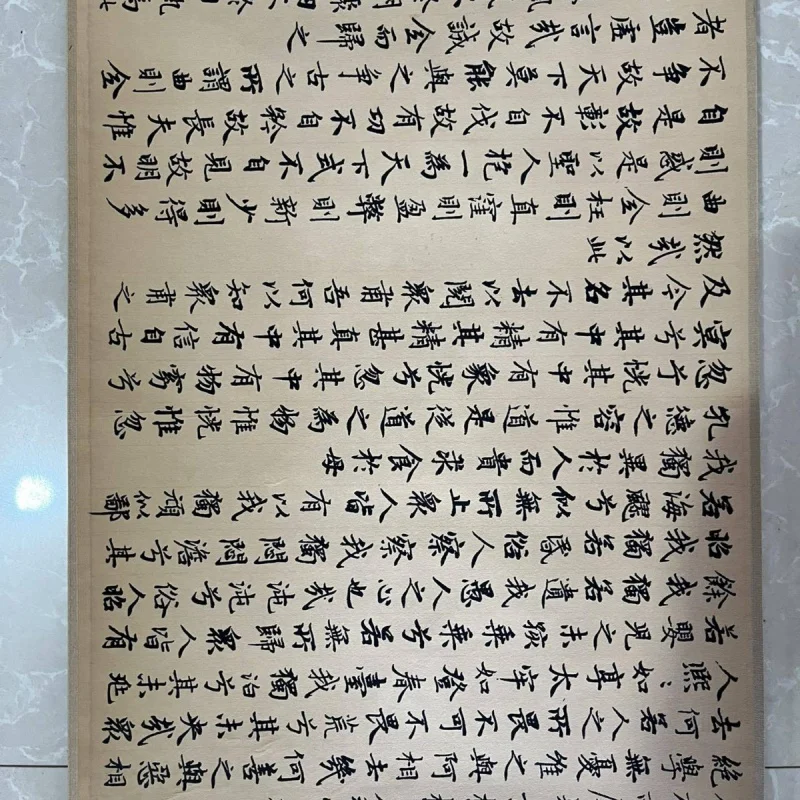 絕學無憂維之與阿相去幾何善之與惡相
去何若人之所畏不可不畏荒兮其未央哉衆
人熙〻如享太牢如登春臺我獨泊兮其未兆
若嬰兒之未孩乘乘兮若無所歸衆人皆有
餘我獨若遺我愚人之心也哉沌沌兮俗人昭
昭我獨若昏俗人察察我獨悶悶澹兮其
若海飂兮似無所止衆人皆有以我獨頑似鄙
我獨異於人而貴求食於母
孔德之容惟道是從道之為物惟恍惟忽
忽兮恍其中有象恍兮忽其中有物窈兮
冥兮其中有精其精甚真其中有信自古
及今其名不去以閱衆甫吾何以知衆甫之
然哉以此
曲則全枉則直窪則盈弊則新少則得多
則惑是以聖人抱一為天下式不自見故明不
自是故彰不自伐故有功不自矜故長夫惟
不爭故天下莫能與之爭古之所謂曲則全
者豈虛言哉故誠全而歸之